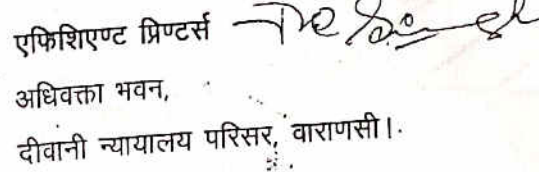 एफिशिएण्ट प्रिण्टर्स
अधिवक्ता भवन,
दीवानी न्यायालय परिसर, वाराणसी।